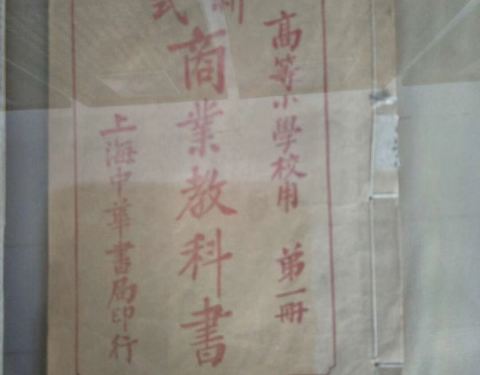 高等小學校用 第一冊
新式商業教科書
上海中華書局印行